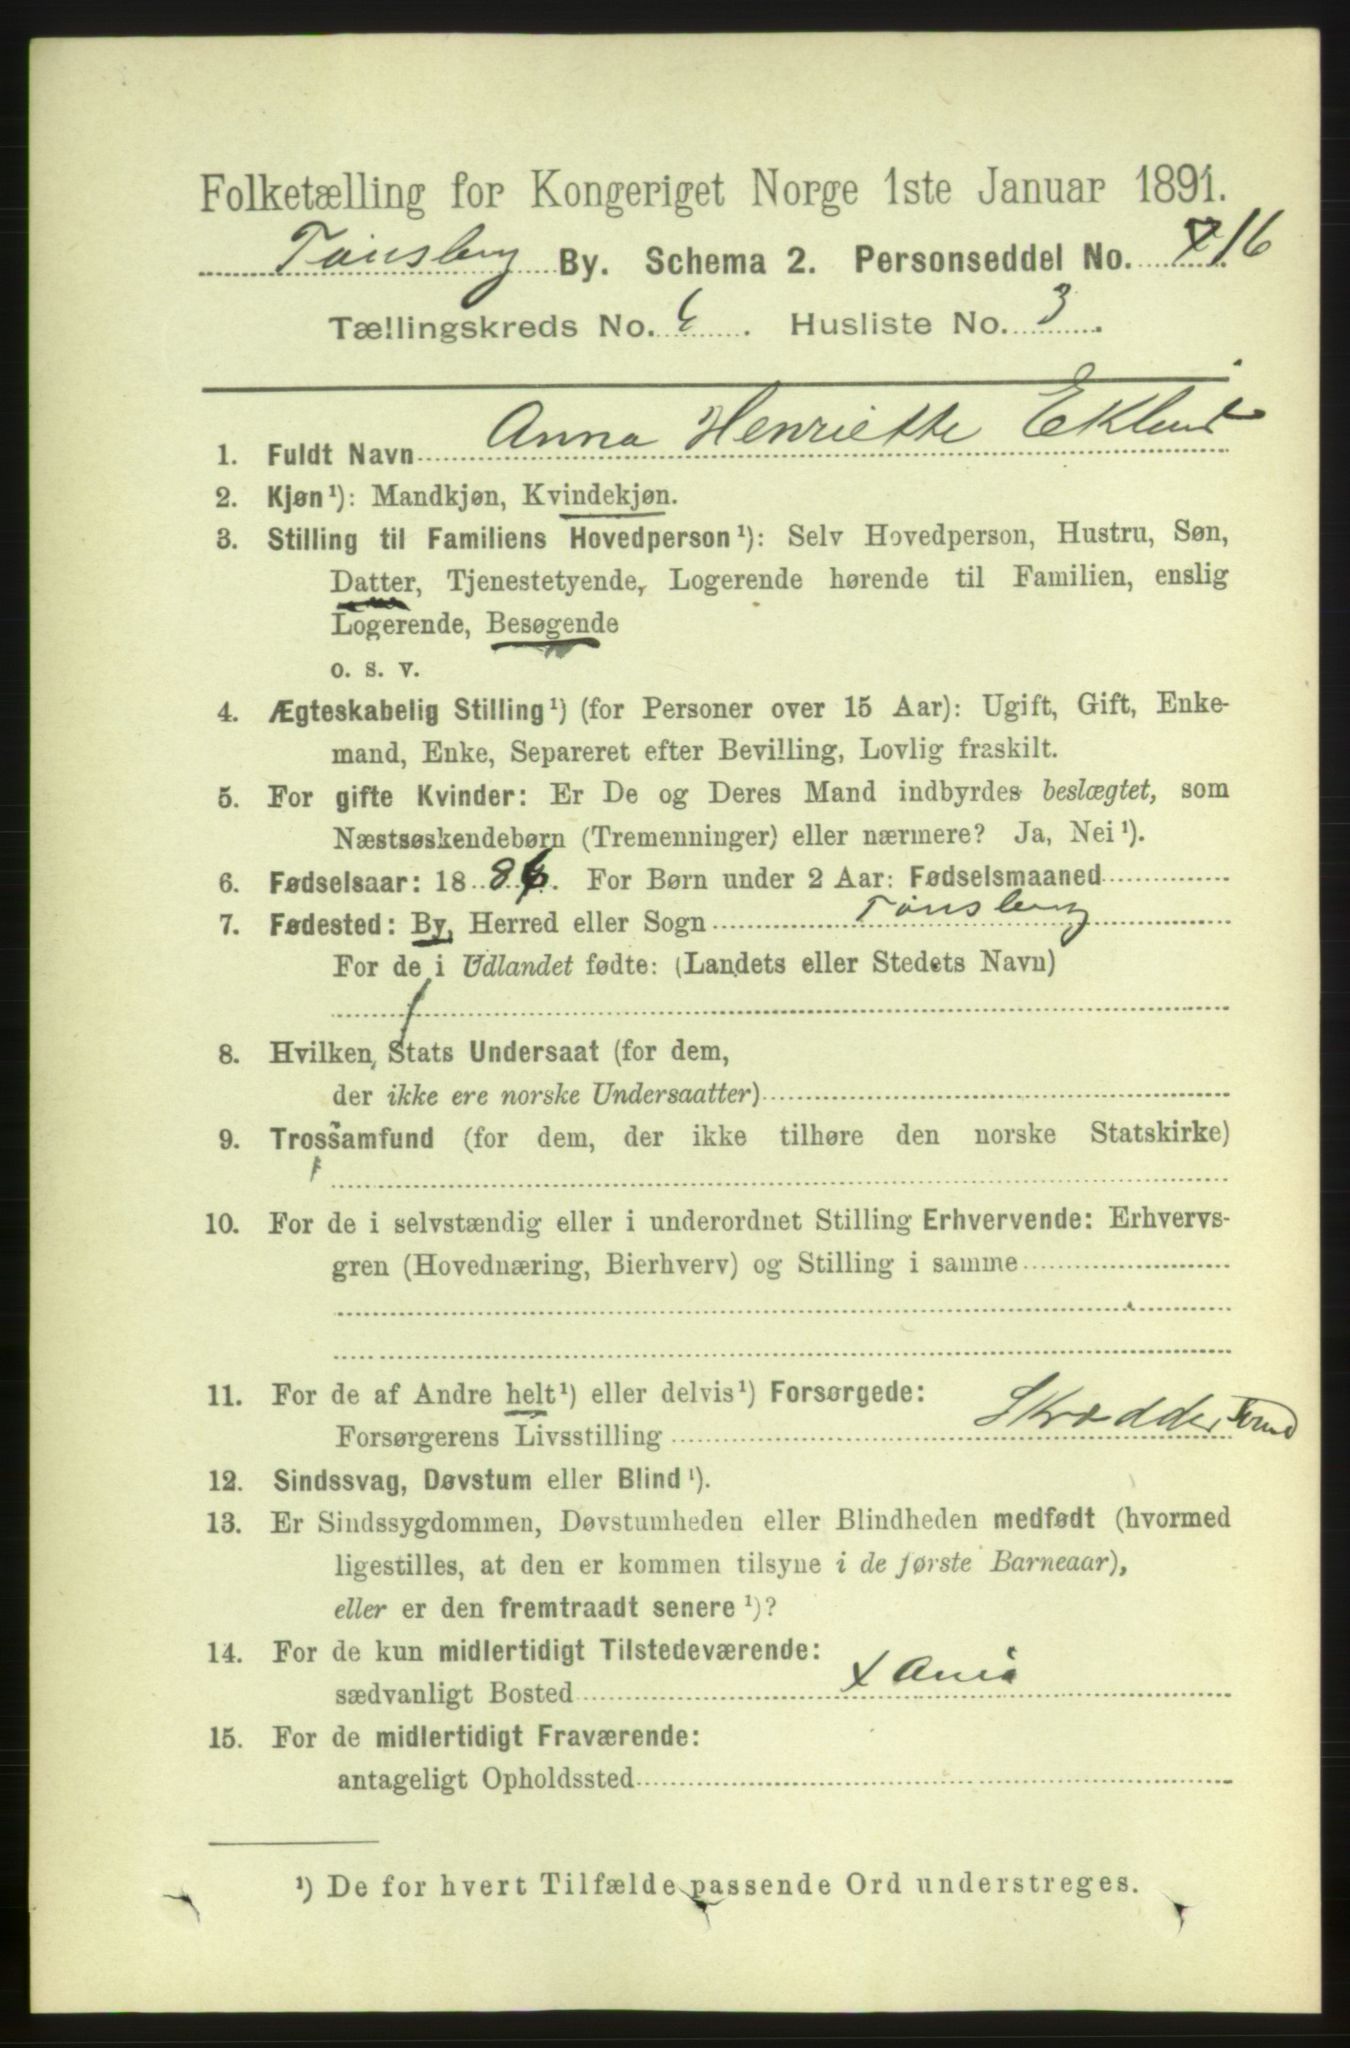 Folketælling for Kongeriget Norge 1ste Januar 1891.
Tønsberg By. Schema 2. Personseddel No. 16
Tællingskreds No. 6. Husliste No. 3.
1. Fuldt Navn Anna Henriette Eklund
2. Kjøn¹): Mandkjøn, Kvindekjøn.
3. Stilling til Familiens Hovedperson¹): Selv Hovedperson, Hustru, Søn,
Datter, Tjenestetyende, Logerende hørende til Familien, enslig
Logerende, Besøgende
o. s. v.
4. Ægteskabelig Stilling¹) (for Personer over 15 Aar): Ugift, Gift, Enke-
mand, Enke, Separeret efter Bevilling, Lovlig fraskilt.
5. For gifte Kvinder: Er De og Deres Mand indbyrdes beslægtet, som
Næstsøskendebørn (Tremenninger) eller nærmere? Ja, Nei¹).
6. Fødselsaar: 1886. For Børn under 2 Aar: Fødselsmaaned
7. Fødested: By, Herred eller Sogn Tønsberg
For de i Udlandet fødte: (Landets eller Stedets Navn)
8. Hvilken Stats Undersaat (for dem,
der ikke ere norske Undersaatter)
9. Trossamfund (for dem, der ikke tilhøre den norske Statskirke)
10. For de i selvstændig eller i underordnet Stilling Erhvervende: Erhvervs-
gren (Hovednæring, Bierhverv) og Stilling i samme
11. For de af Andre helt¹) eller delvis¹) Forsørgede:
Forsørgerens Livsstilling Skrædder
12. Sindssvag, Døvstum eller Blind¹).
13. Er Sindssygdommen, Døvstumheden eller Blindheden medfødt (hvormed
ligestilles, at den er kommen tilsyne i de første Barneaar),
eller er den fremtraadt senere¹)?
14. For de kun midlertidigt Tilstedeværende:
sædvanligt Bosted x
15. For de midlertidigt Fraværende:
antageligt Opholdssted
¹) De for hvert Tilfælde passende Ord understreges.